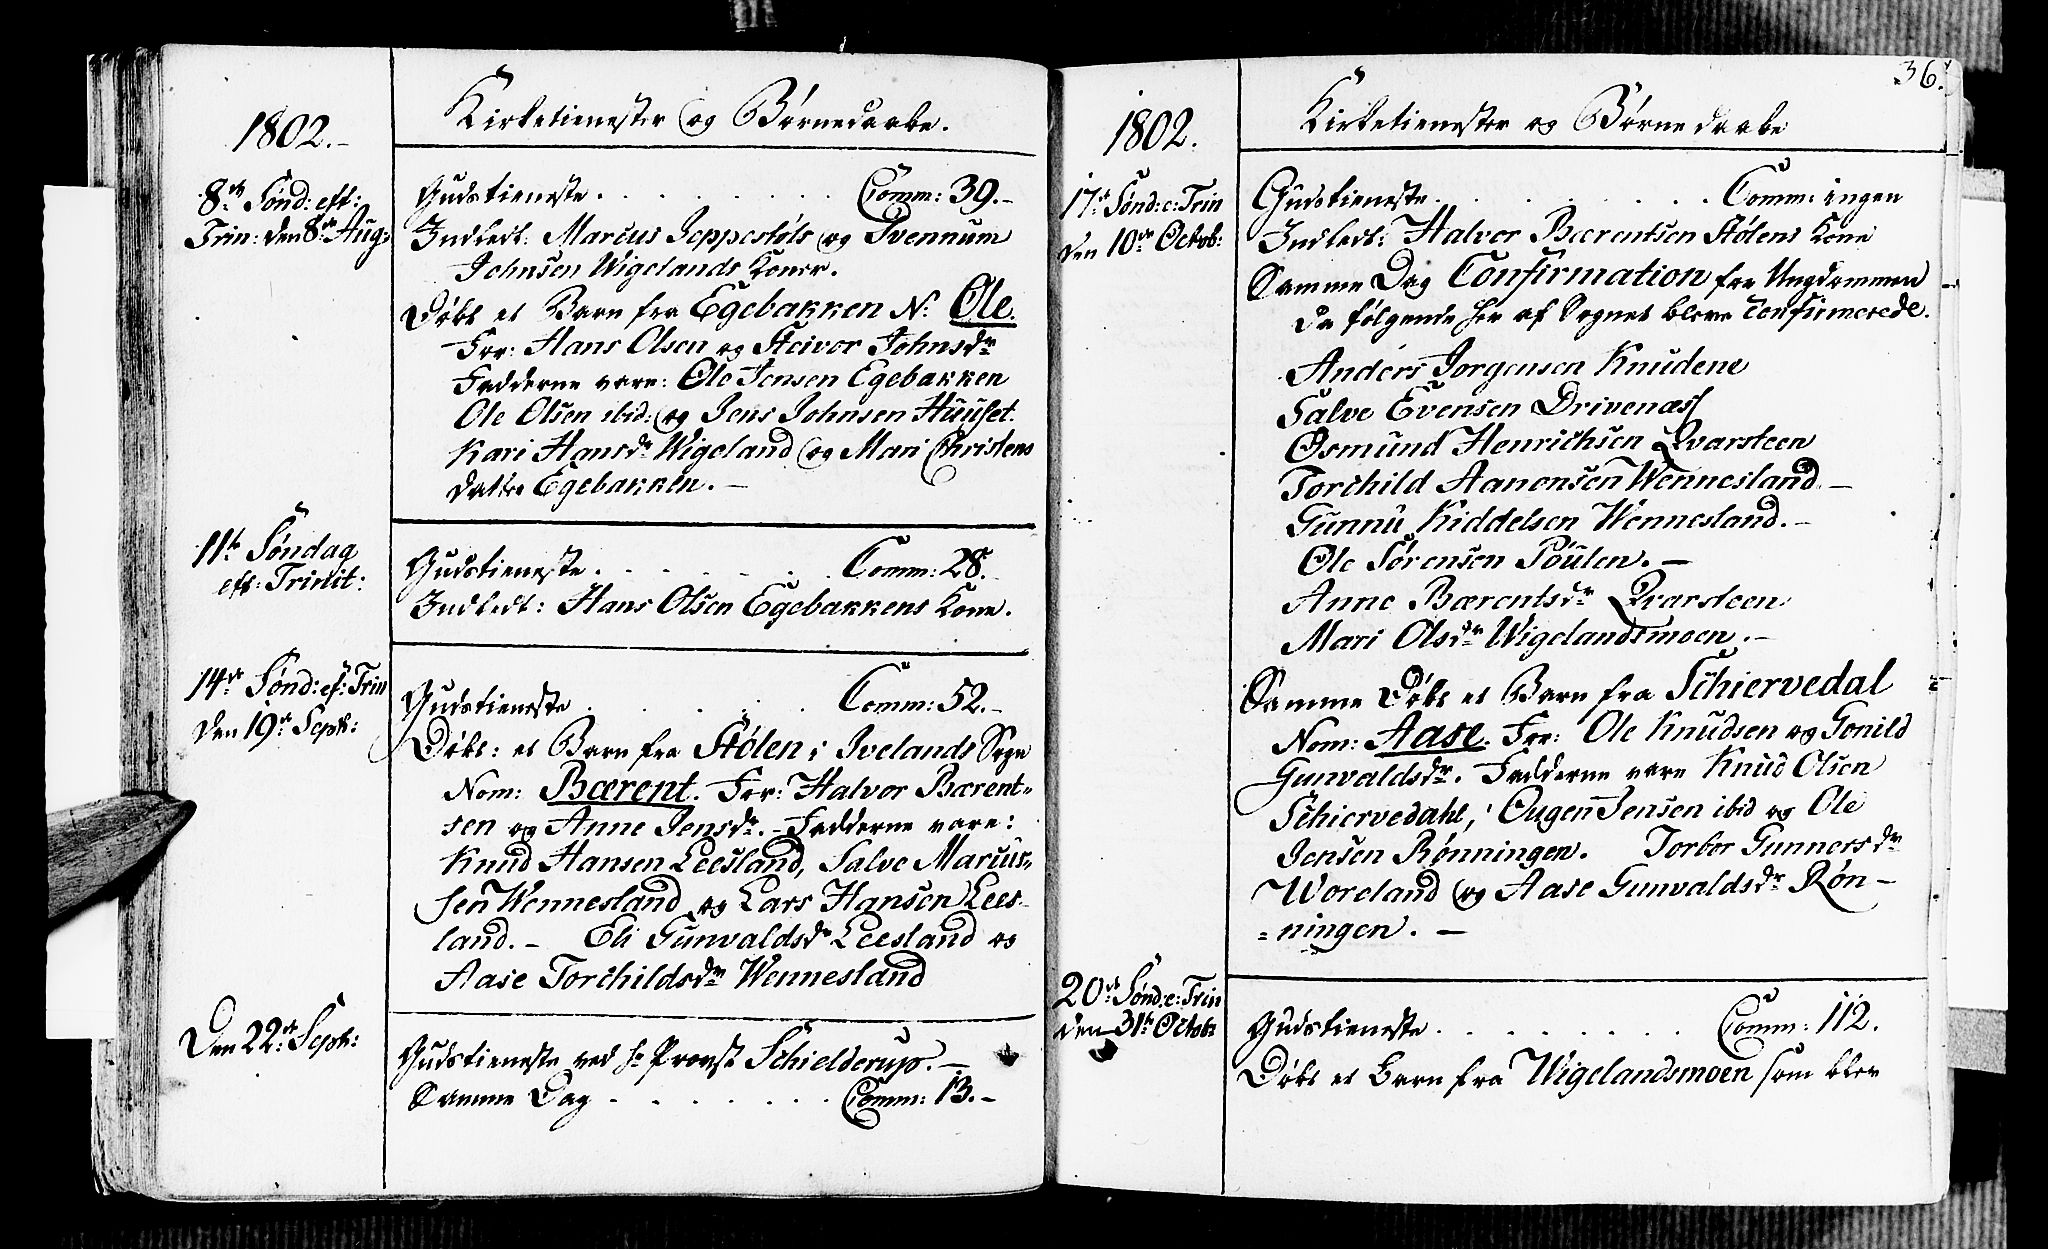 1802.-
Kirketienester og Børnedaabe.
8de Sønd: eft:
Trin: den 8de Aug:
Gudstieneste . . . . . . . Comm: 39.-
Indledt: Marcus Jeppestøls og Svennum
Johnsen Wigelands Koner.
Døbt et Barn fra Egebakken N: Ole.
For: Hans Olsen og Steivor Johnsdr
Fadderne vare: Ole Jensen Egebakken
Ole Olsen ibid: og Jens Johnsen Huuset.
Kari Hansdr Wigeland og Mari Christens
datter Egebakken. -
11te Søndag
eft: Trinit:
Gudstieneste . . . . . . Comm: 28.
Indledt: Hans Olsen Egebakkens Kone.
14de Sønd: ef: Trin
den 19de Septb:
Gudstieneste . . . . . Comm: 52.-
Døbt: et Barn fra Stølen i Ivelands Sogn
Nom: Bærent. For: Halvor Bærent-
sen og Anne Jensdr. - Fadderne vare:
Knud Hansen Leesland, Salve Marcus-
sen Wennesland og Lars Hansen Lees-
land. - Eli Gunvaldsdr Leesland og
Aase Torchildsdr Wennesland
Den 22de Septb:
Gudstieneste ved Hr Provst Schielderup. -
Samme Dag . . . . . . . Comm: 13.-
36.
1802.
Kirketienester og Børnedaabe
17de Sønd: e: Trin
den 10de Octob:
Gudstieneste . . . . . . . Comm: ingen
Indledt: Halvor Bærentsen Stølens Kone
Samme Dag Confirmation for Ungdommen
da følgende her af Sognet bleve Confirmerede.
Anders Jørgensen Knudene
Salve Evensen Drivenæss
Osmund Henrichsen Qvarsteen
Torchild Aanensen Wennesland -
Gunnu Kiddelsen Wennesland. -
Ole Sørensen Poulen. -
Anne Bærentsdr Qvarsteen
Mari Olsdr Wigelandsmoen. -
Samme Døbt et Barn fra Schiervedal
Nom: Aase. For: Ole Knudsen og Gonild
Gunvaldsdr. Fadderne vare Knud Olsen
Schiervedahl, Ougen Jensen ibid og Ole
Jensen Rønningen. Torbor Gunnersdr
Woreland og Aase Gunvaldsdr Røn-
=ningen. -
20de Sønd: e: Trin
den 31te Octob:
Gudstieneste . . . . . . . Comm: 112.
Døbt et Barn fra Wigelandsmoen som blev